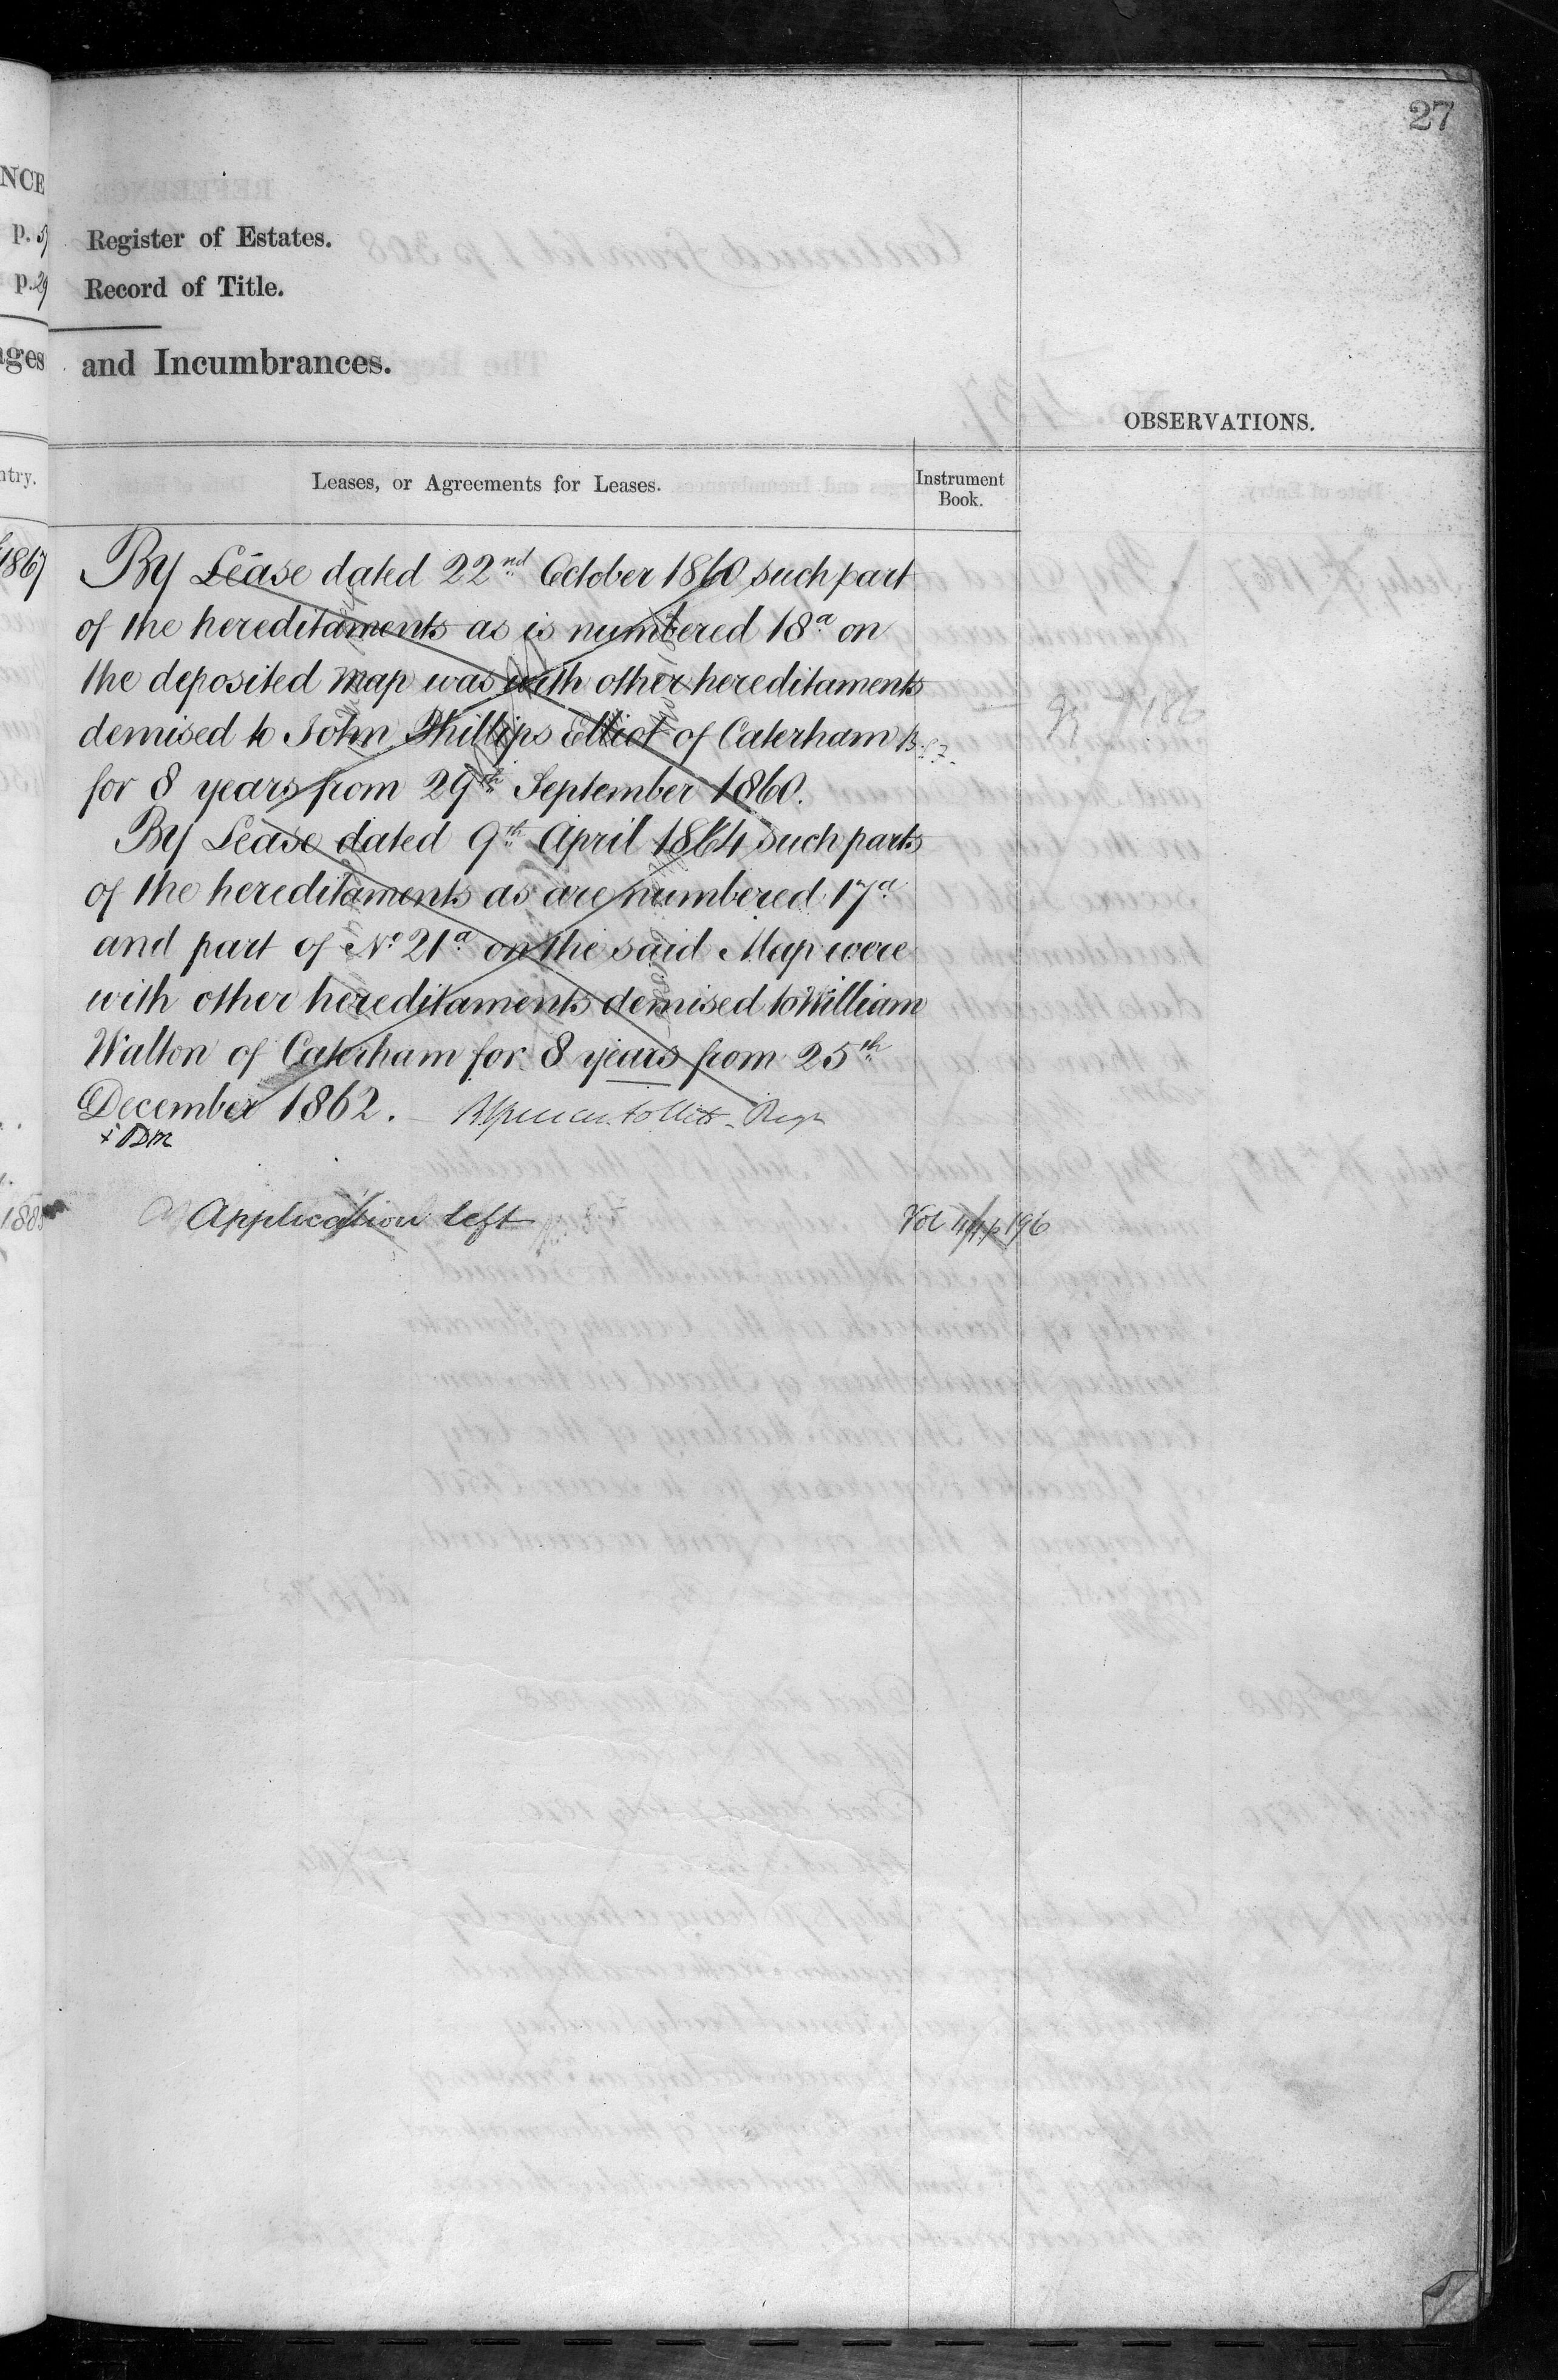 27
NCE
p. Register of Estates.
p. 29 Record of Title.
ages and Incumbrances.
OBSERVATIONS.
ntry. Leases, or Agreements for Leases. Instrument Book.
1867 By Lease dated 22nd October 1860 such part
of the hereditaments as is numbered 18a on
the deposited Map was with other hereditaments
demised to John Phillips Elliot of Caterham
for 8 years from 29th September 1860.
By Lease dated 9th April 1864 such parts
of the hereditaments as are numbered 17a
and part of No 21a on the said Map were
with other hereditaments demised to William
Walton of Caterham for 8 years from 25th
December 1862. Regr
188 Application left Vol 4 p 196